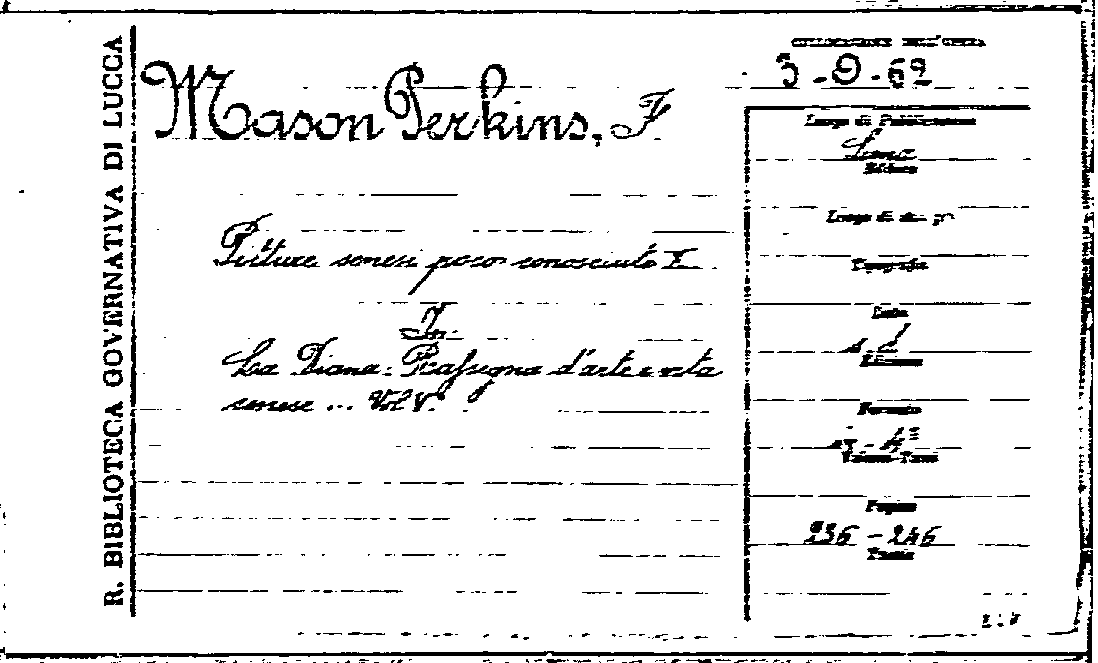 R. BIBLIOTECA GOVERNATIVA DI LUCCA
COLLOCAZIONE DELL'OPERA
3 - D - 62
Mason Perkins, F
Pitture senesi poco conosciute I.
In
La Diana: Rassegna d'arte e vita
senese ... Vol V.
Luogo di Pubblicazione
Siena
Editore
Luogo di
Tipografia
Data
s. d.
Edizione
Formato
in - 4°
Volumi-Tomi
Pagine
236 - 246
Tavole